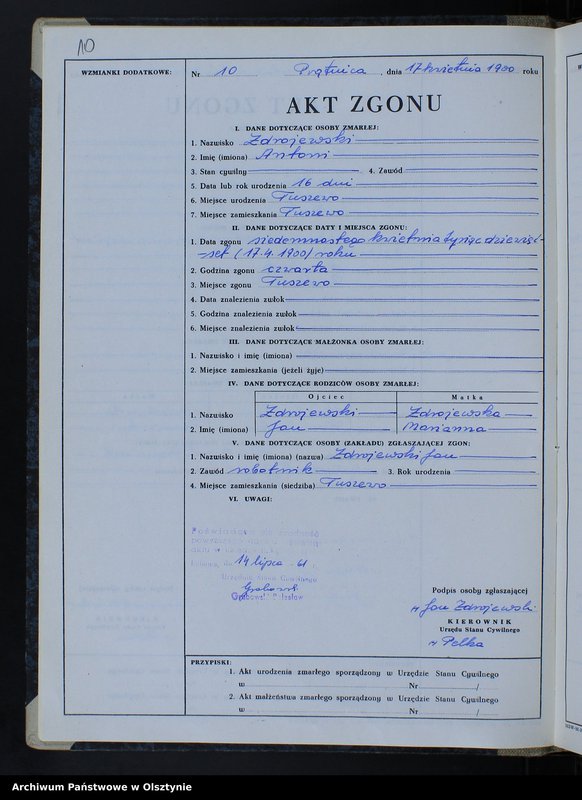 10
WZMIANKI DODATKOWE:
Nr 10 Prątnica, dnia 17 kwietnia 1900 roku
AKT ZGONU
I. DANE DOTYCZĄCE OSOBY ZMARŁEJ:
1. Nazwisko Zdrojewski
2. Imię (imiona) Antoni
3. Stan cywilny 4. Zawód
5. Data lub rok urodzenia 16 dni
6. Miejsce urodzenia Tuszewo
7. Miejsce zamieszkania Tuszewo
II. DANE DOTYCZĄCE DATY I MIEJSCA ZGONU:
1. Data zgonu siedemnastego kwietnia tysiąc dziewięć-
-set (17.4.1900) roku
2. Godzina zgonu czwarta
3. Miejsce zgonu Tuszewo
4. Data znalezienia zwłok
5. Godzina znalezienia zwłok
6. Miejsce znalezienia zwłok
III. DANE DOTYCZĄCE MAŁŻONKA OSOBY ZMARŁEJ:
1. Nazwisko i imię (imiona)
2. Miejsce zamieszkania (jeżeli żyje)
IV. DANE DOTYCZĄCE RODZICÓW OSOBY ZMARŁEJ:
Ojciec Matka
1. Nazwisko Zdrojewski Zdrojewska
2. Imię (imiona) Jan Marianna
V. DANE DOTYCZĄCE OSOBY (ZAKŁADU) ZGŁASZAJĄCEJ ZGON:
1. Nazwisko i imię (imiona) (nazwa) Zdrojewski Jan
2. Zawód robotnik 3. Rok urodzenia
4. Miejsce zamieszkania (siedziba) Tuszewo
VI. UWAGI:
Poświadcza się zgodność
14 lipca 61
Urzędnik Stanu Cywilnego
Grabowski
Podpis osoby zgłaszającej
Jan Zdrojewski
KIEROWNIK
Urzędu Stanu Cywilnego
Pelka
PRZYPISKI:
1. Akt urodzenia zmarłego sporządzony w Urzędzie Stanu Cywilnego
w Nr /
2. Akt małżeństwa zmarłego sporządzony w Urzędzie Stanu Cywilnego
w Nr /
Archiwum Państwowe w Olsztynie